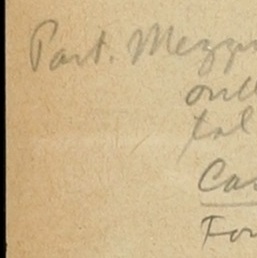 Part. Mezzi
onl
tal
Cas
For